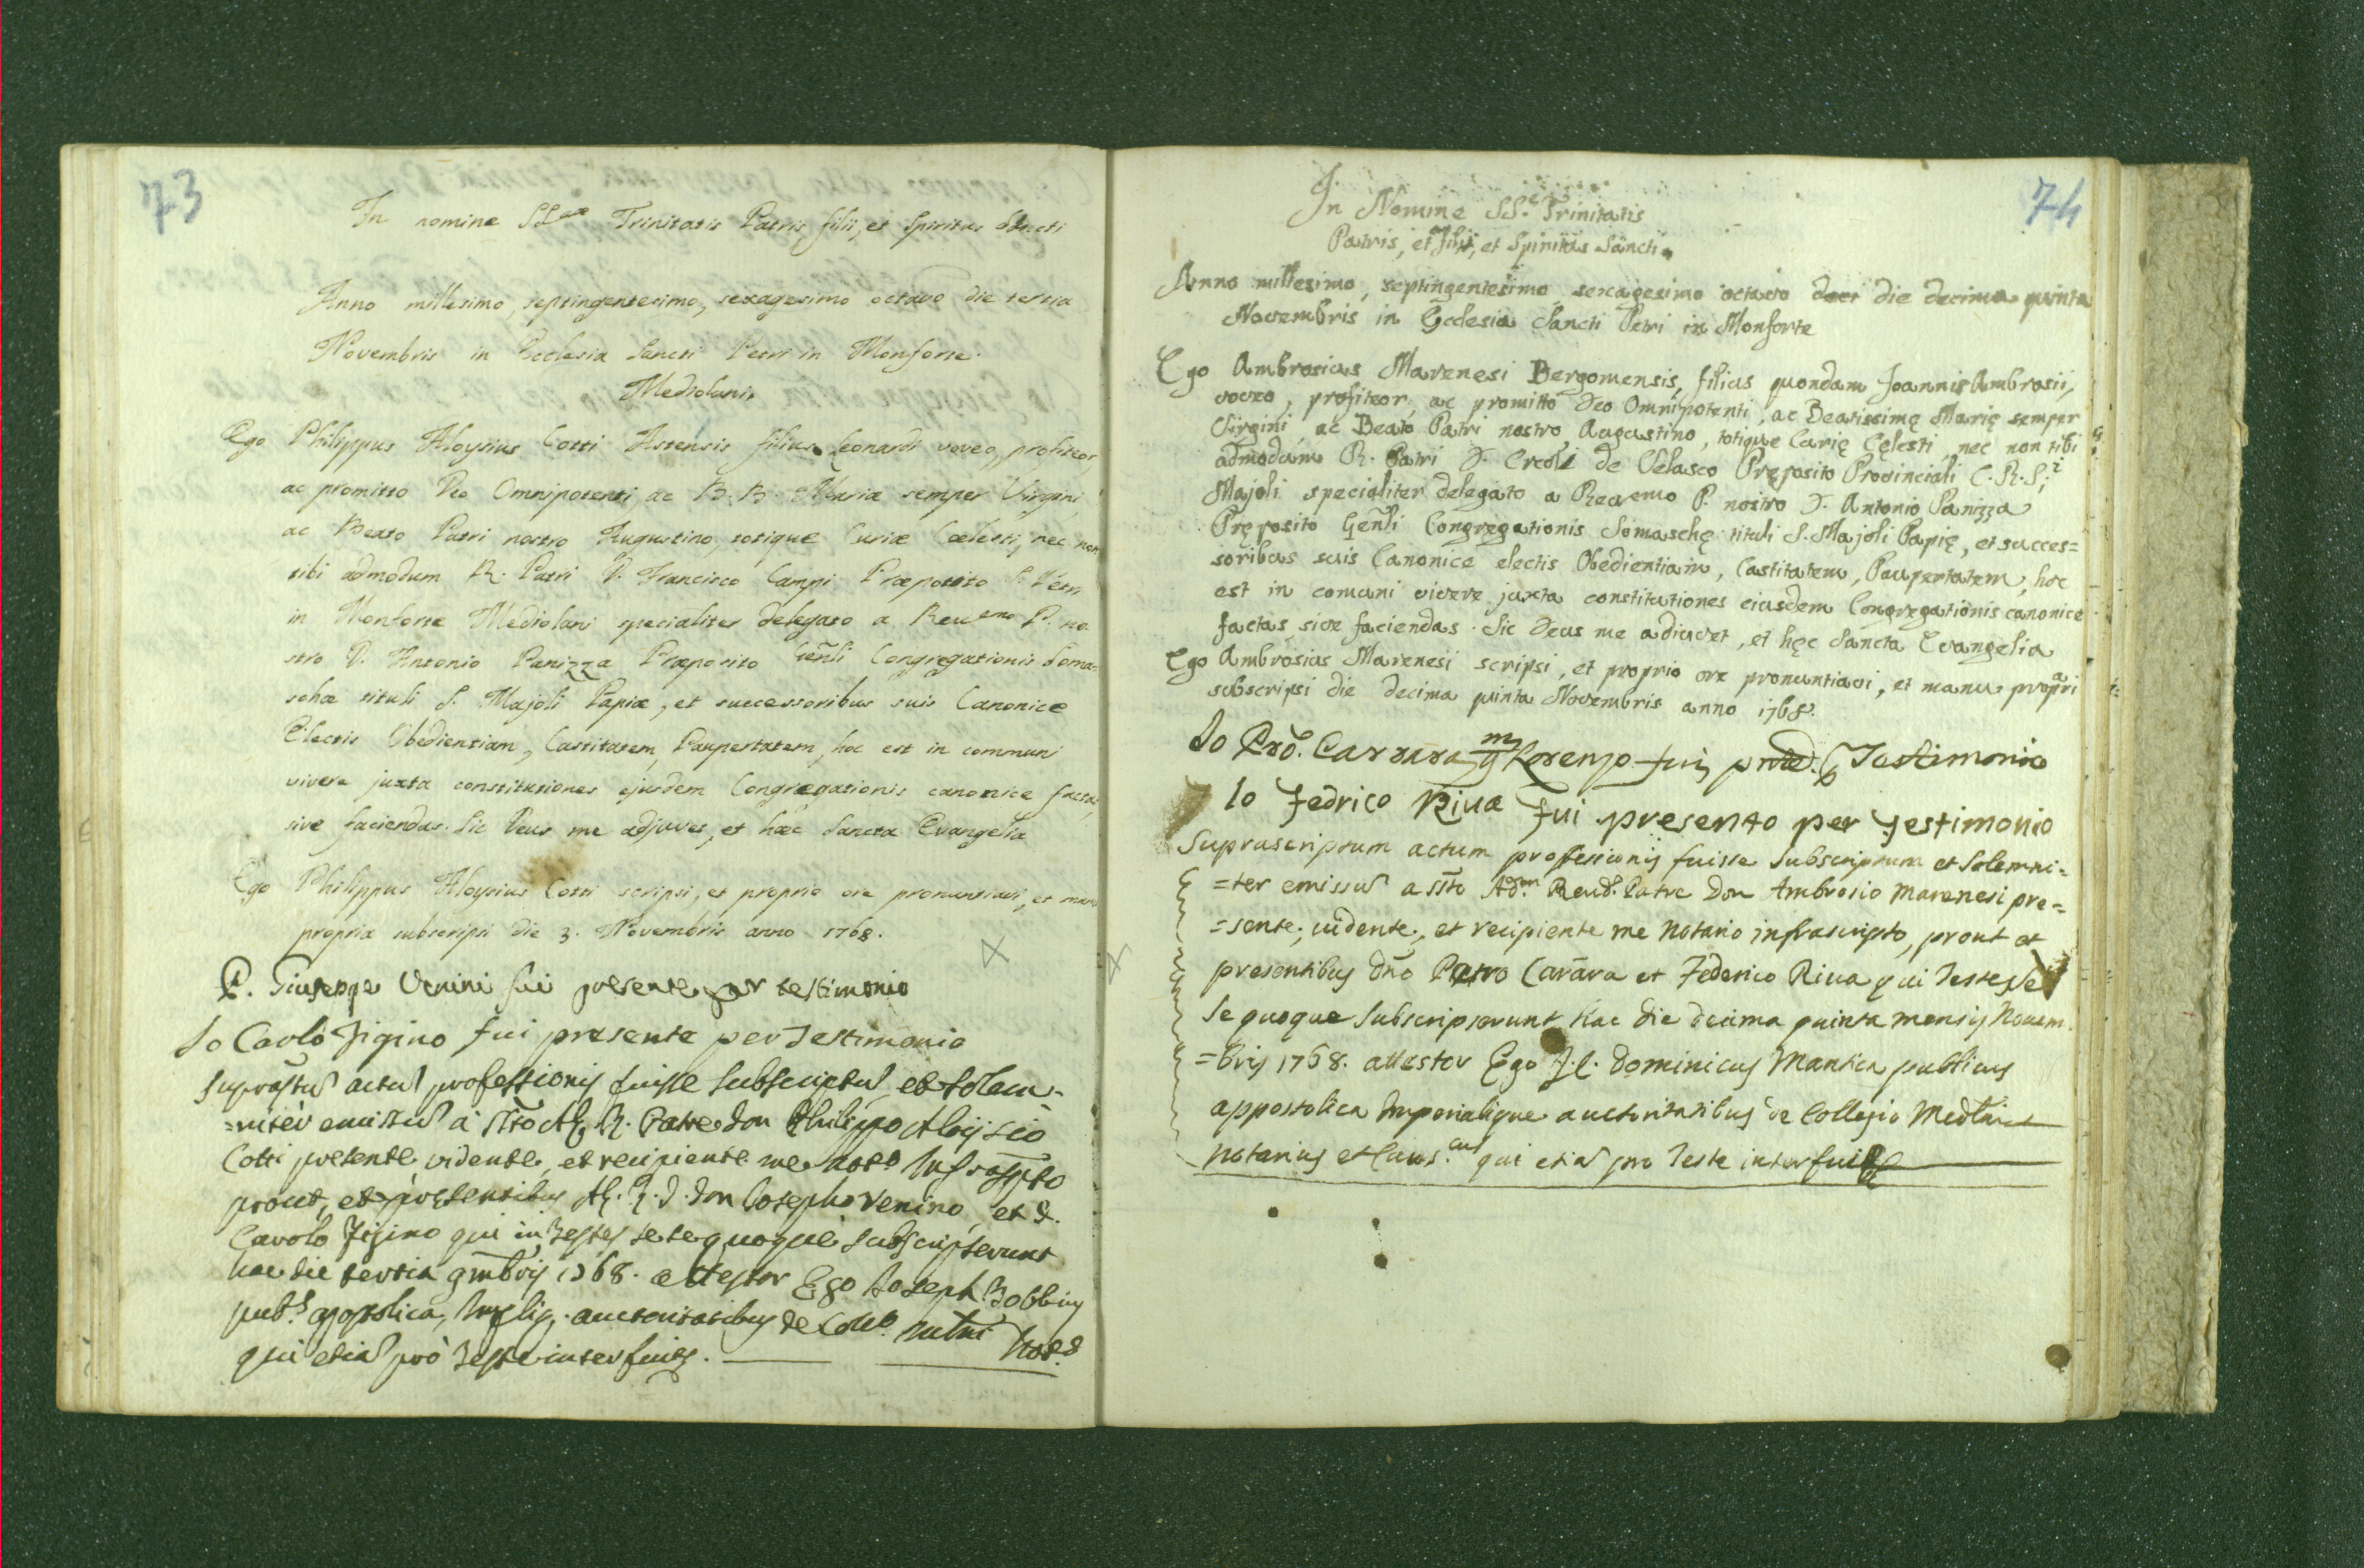 73
In nomine SS.mae Trinitatis Patris, filii, et Spiritus Sancti
Anno millesimo, septingentesimo, sexagesimo octavo die tertia
Novembris in Ecclesia Sancti Petri in Monforte.
Mediolani.
Ego Philippus Aloysius Cotti Astensis filius Leonardi voveo, profiteor,
ac promitto Deo Omnipotenti, ac B. B. Mariæ semper Virgini,
ac Beato Patri nostro Augustino, totique Curiæ Cœlesti, nec non
tibi admodum R. Patri D. Francisco Campi Præposito S. Petri
in Monforte Mediolani specialiter delegato a Reuemo P. no
stro D. Antonio Panizza Præposito Genli Congregationis Soma-
schæ tituli S. Majoli Papiæ, et successoribus suis Canonice
Electis Obedientiam, Castitatem, Paupertatem, hoc est in communi
vivere juxta constitutiones ejusdem Congregationis canonice factas,
sive faciendas. Sic Deus me adjuvet, et hæc Sancta Evangelia
Ego Philippus Aloysius Cotti scripsi, et proprio ore pronuntiavi, et manu
propria subscripsi die 3. Novembris anno 1768.
P. Giuseppe Venini fui presente per testimonio
Io Carlo Figino fui presente per Testimonio
suprastu actu professionis fuisse subscriptu, et solem-
=niter emissu à ssto Ad. R. Patre Don Philippo Aloijsio
Cotti presente vidente, et recipiente me noto Infrascpto
prout, et presentibus Ad. R. D. Don Josepho Venino, et D.
Carolo Figino qui in Testes se se quoque subscripserunt
hac die tertia 9mbris 1768. attestor Ego Joseph Bobbius
pubs. apostolica, Impliq. auctoritatibus de Collo. Mlni Not.s
qui etia pro Teste interfui.
74
In Nomine SS. Trinitatis
Patris, et Filii, et Spiritus Sancti.
Anno millesimo, septingentesimo sexagesimo octavo deci die decima quinta
Novembris in Ecclesia Sancti Petri in Monforte
Ego Ambrosius Marenesi Bergomensis, filius quondam Joannis Ambrosii,
voveo, profiteor, ac promitto Deo Omnipotenti, ac Beatissimę Marię semper
Virgini, ac Beato Patri nostro Augustino, totique Curię Cęlesti, nec non tibi
admodum R. Patri D. Ercoli de Velasco Pręposito Provinciali C. R. S.i
Majoli specialiter delegato a Reuemo P. nostro D. Antonio Panizza
Pręposito Genli Congregationis Somaschę tituli S. Majoli Papię, et succes=
soribus suis Canonice electis Obedientiam, Castitatem, Paupertatem, hoc
est in comuni vivere juxta constitutiones eiusdem Congregationis canonice
factas, sive faciendas. Sic Deus me adiuvet, et hęc Sancta Evangelia
Ego Ambrosius Marenesi scripsi, et proprio ore pronuntiavi, et manu propria
subscripsi die decima quinta Novembris anno 1768.
Io Carrara Lorenzo fui Testimonio
Io Fedrico Riva fui presento per Testimonio
Suprascriptum actum professionis fuisse subscriptum et solemni=
=ter emissu a ssto Adm. Reud. Patre Don Ambrosio Marenesi pre=
=sente, uidente, et recipiente me Notario infrascripto, prout et
presentibus Dno Petro Carrara et Federico Riua qui Testes
Se quoque subscripserunt hac die decima quinta mensis Nouem
=bris 1768. attestor Ego J. C. Dominicus Mantica publicus
appostolica Imperialique auctoritatibus de Collegio Medlni
notarius et Caus.cus qui etia pro Teste interfui